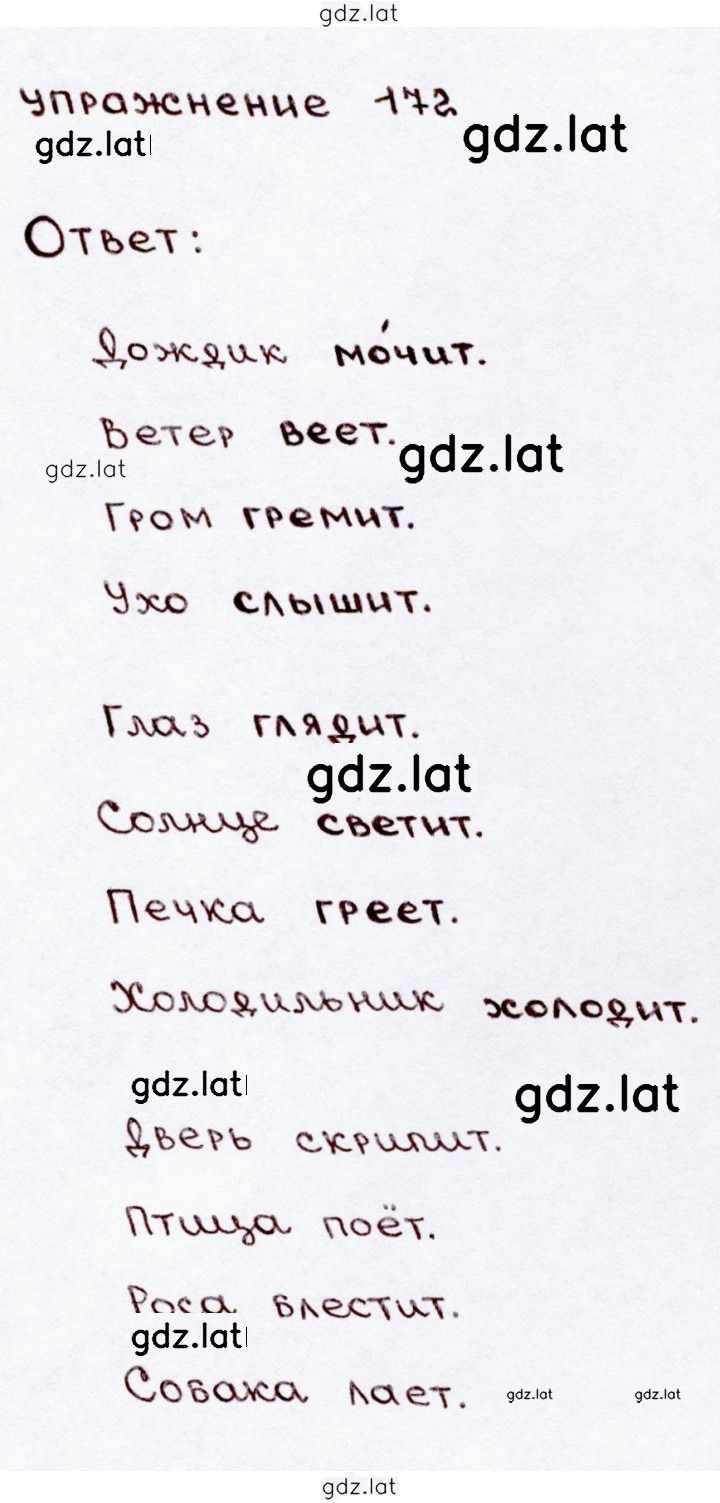 gdz.lat
упражнение 172
gdz.lat
gdz.lat
Ответ:
Дождик мо́чит.
Ветер веет.
gdz.lat
gdz.lat
Гром гремит.
Ухо слышит.
Глаз глядит.
gdz.lat
Солнце светит.
Печка греет.
Холодильник холодит.
gdz.lat
gdz.lat
Дверь скрипит.
Птица поёт.
Роса блестит.
gdz.lat
Собака лает.
gdz.lat
gdz.lat
gdz.lat